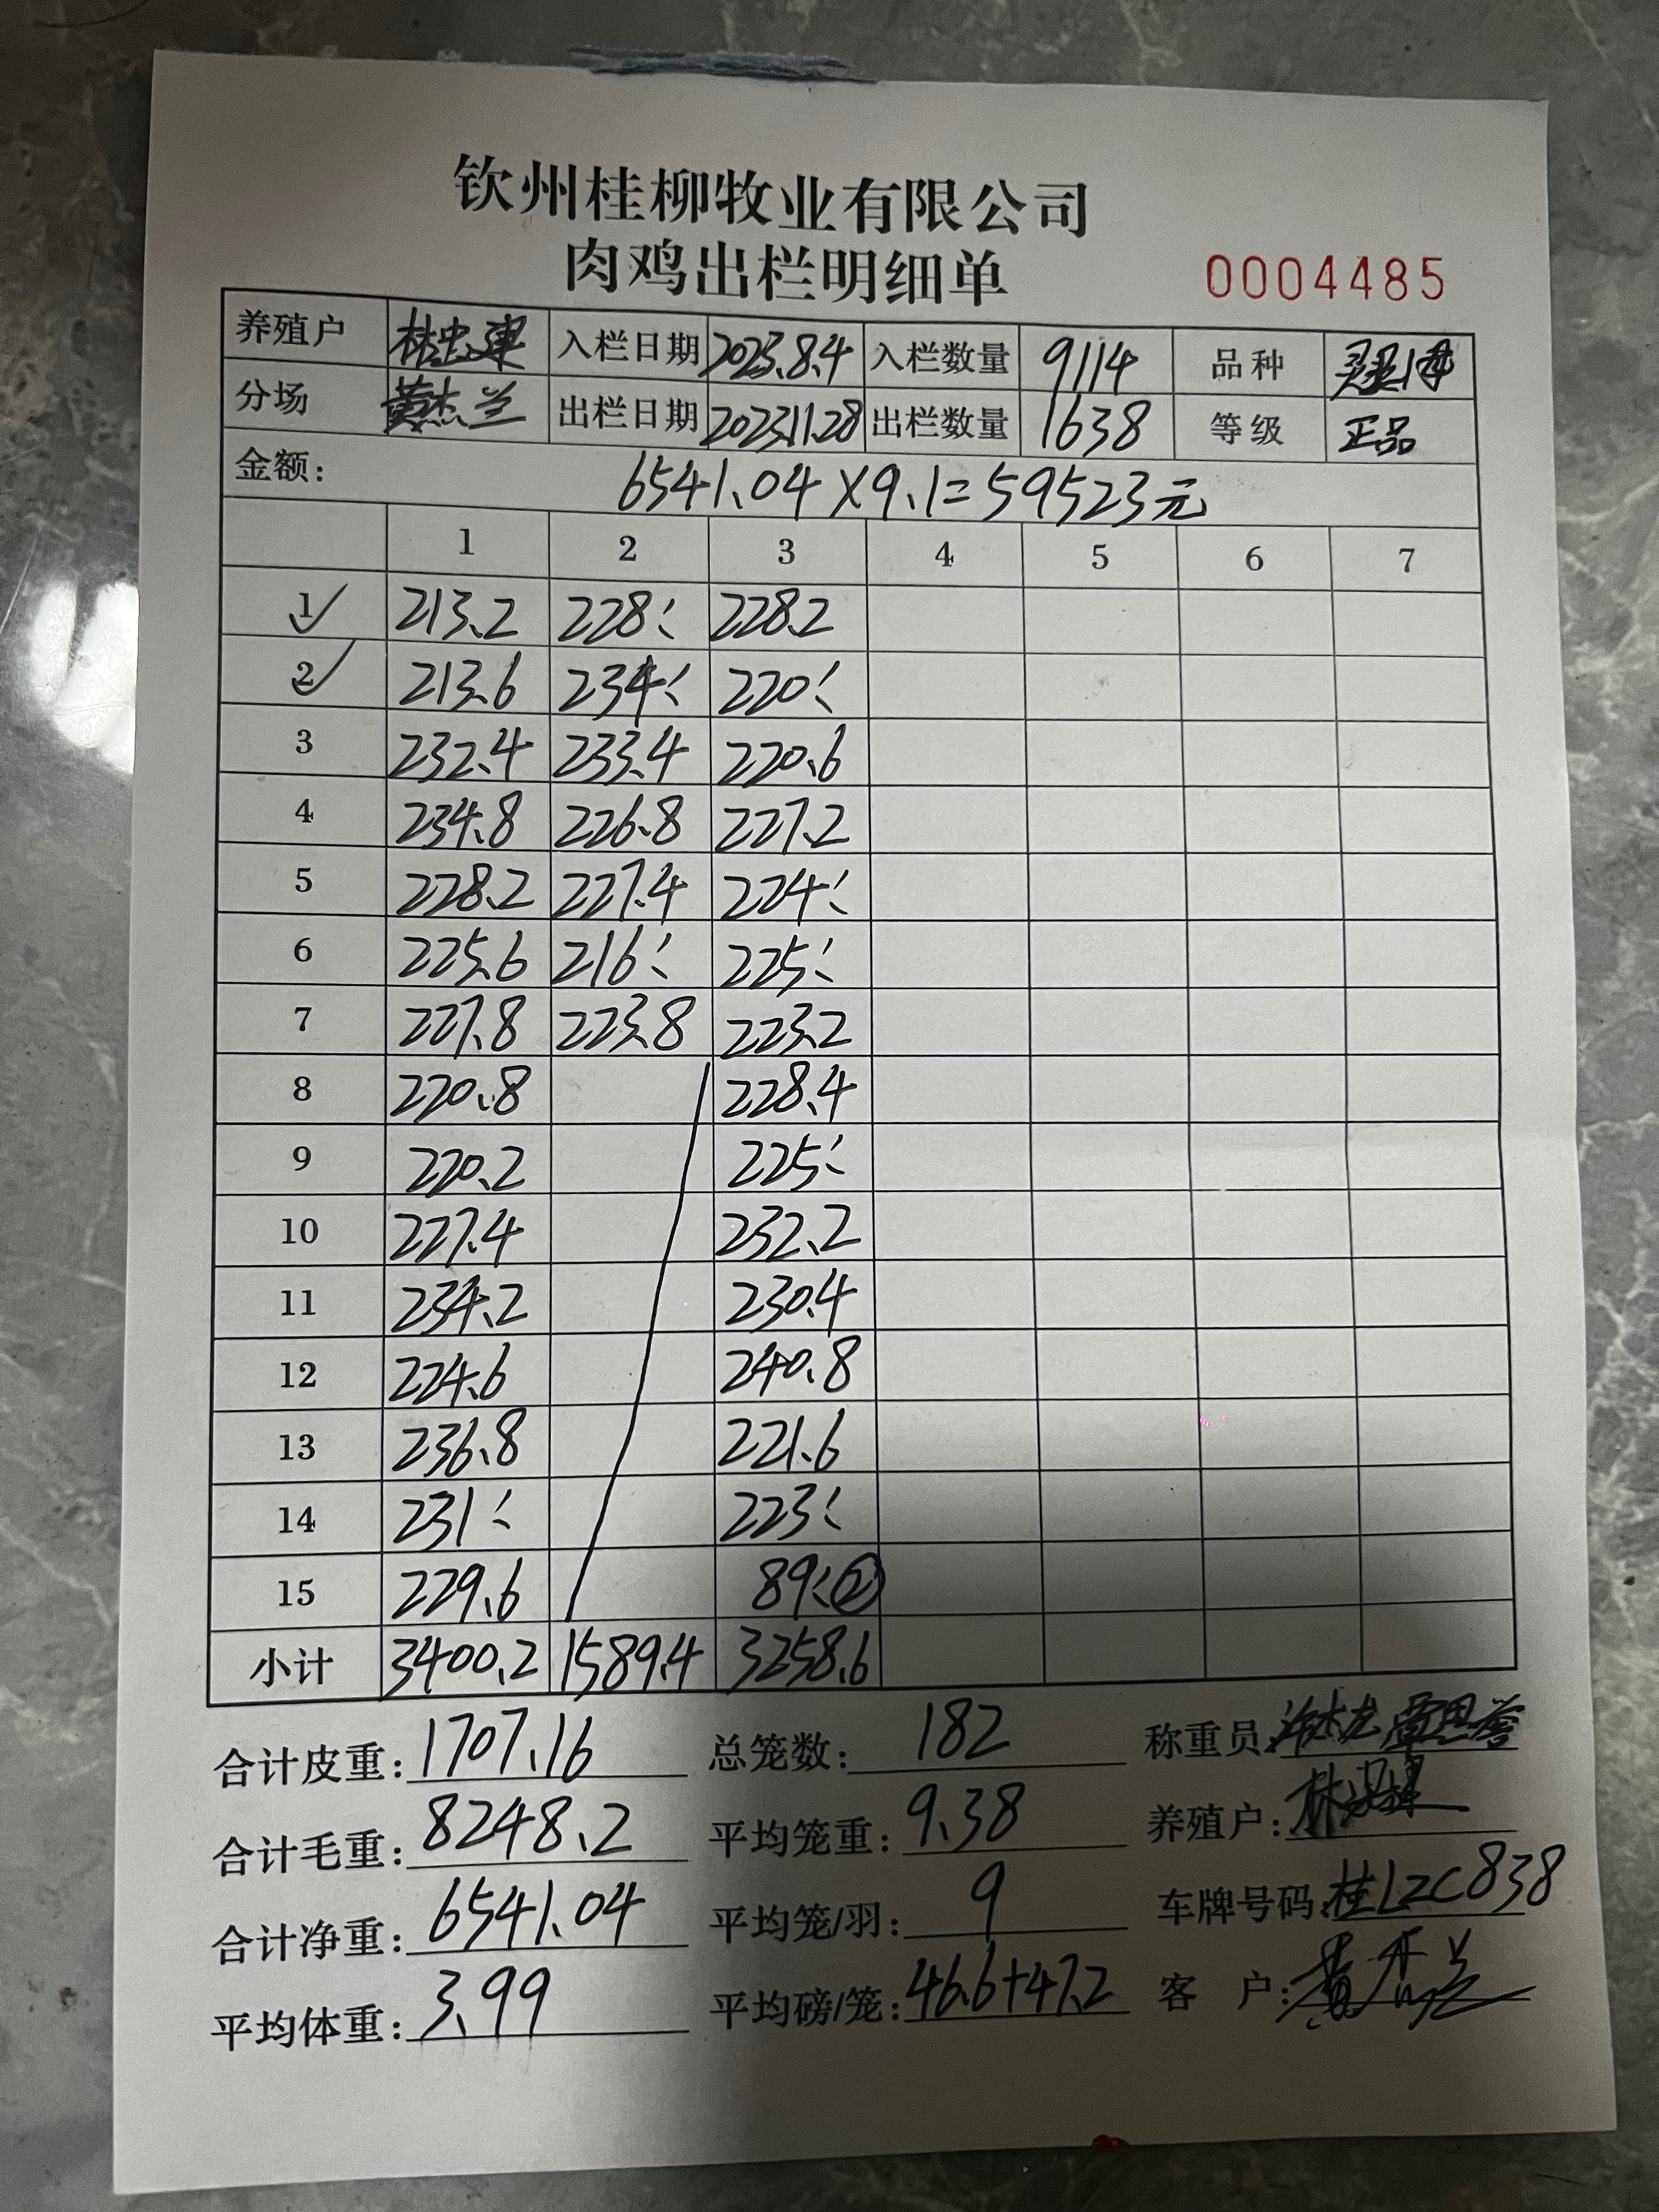 钦州桂柳牧业有限公司
肉鸡出栏明细单 0004485
养殖户 林忠建 入栏日期 2023.8.4 入栏数量 9114 品种
分场 黄杰兰 出栏日期 2023.11.28 出栏数量 1638 等级 正品
金额: 6541.04×9.1=59523元
1 2 3 4 5 6 7
1 213.2 228: 228.2
2 213.6 234: 220:
3 232.4 233.4 220.6
4 234.8 226.8 227.2
5 228.2 227.4 224:
6 225.6 216: 225:
7 227.8 223.8 223.2
8 220.8 228.4
9 220.2 225:
10 227.4 232.2
11 234.2 230.4
12 224.6 240.8
13 236.8 221.6
14 231: 223:
15 229.6 89:②
小计 3400.2 1589.4 3258.6
合计皮重: 1707.16 总笼数: 182 称重员:
合计毛重: 8248.2 平均笼重: 9.38 养殖户:
合计净重: 6541.04 平均笼/羽: 9 车牌号码: 桂LZC838
平均体重: 3.99 平均磅/笼: 46.6+47.2 客户: